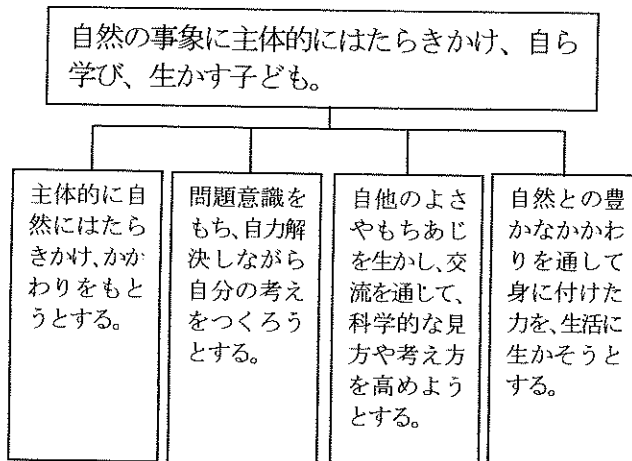 自然の事象に主体的にはたらきかけ、自ら
学び、生かす子ども。
主体的に自
然にはたら
きかけ、かか
わりをもと
うとする。
問題意識を
もち、自力解
決しながら
自分の考え
をつくろう
とする。
自他のよさ
やもちあじ
を生かし、交
流を通じて、
科学的な見
方や考え方
を高めよう
とする。
自然との豊
かなかかわ
りを通して
身に付けた
力を、生活に
生かそうと
する。